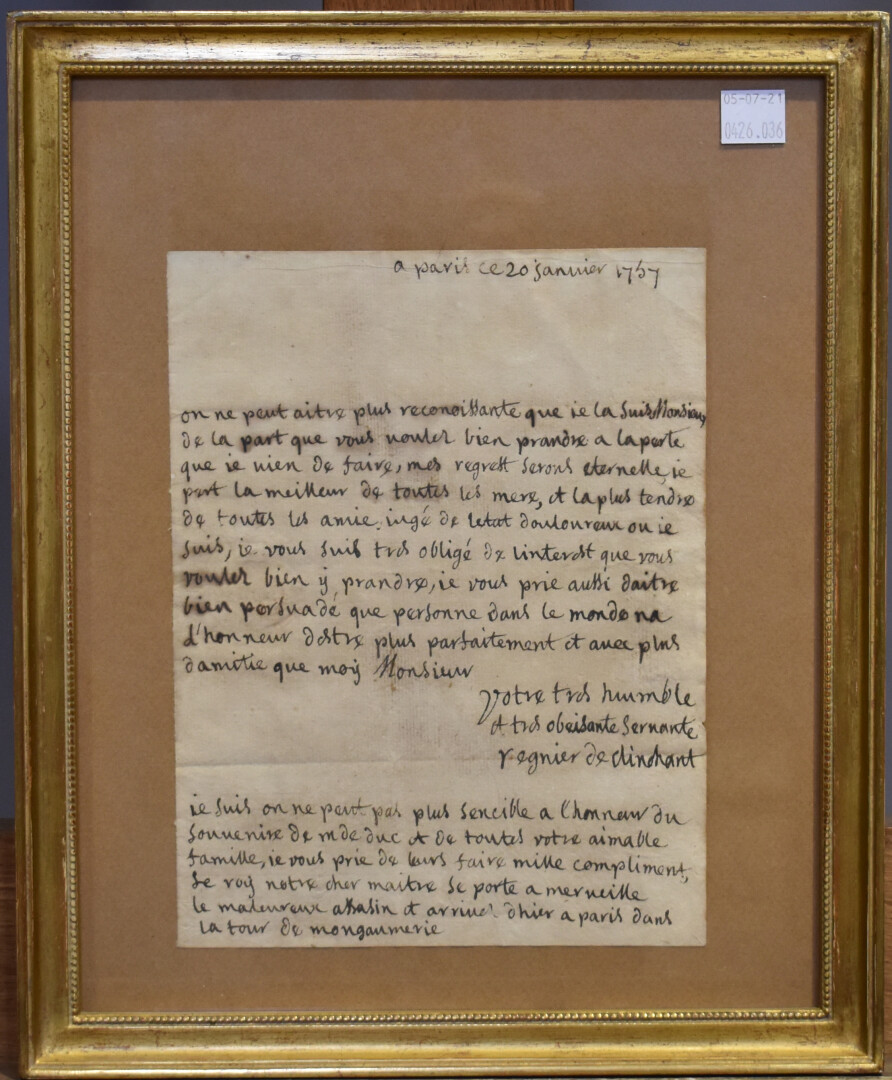 05-07-21
0426.036
a paris ce 20 janvier 1757
on ne peut aitre plus reconoissante que ie la suis Monsieur,
de la part que vous voulez bien prandre a la perte
que ie vien de faire, mes regrett serons eternelle, ie
pert la meilleur de toutes les mere, et la plus tendre
de toutes les amie. iugé de letat douloureux ou ie
suis, ie vous suis tres obligé de linterest que vous
voulez bien ÿ prandre, ie vous prie aussi daitre
bien persuadé que personne dans le monde na
d'honneur destre plus parfaitement et avec plus
damitie que moÿ Monsieur
Votre tres humble
et tres obeisante servante
regnier de clinchant
ie suis on ne peut pas plus sencible a l'honneur du
souvenire de mde duc et de toutes votre aimable
famille, ie vous prie de leurs faire mille compliment,
le roÿ notre cher maitre se porte a merveille
le maleureux assasin et arrivez dhier a paris dans
la tour de mongaumerie